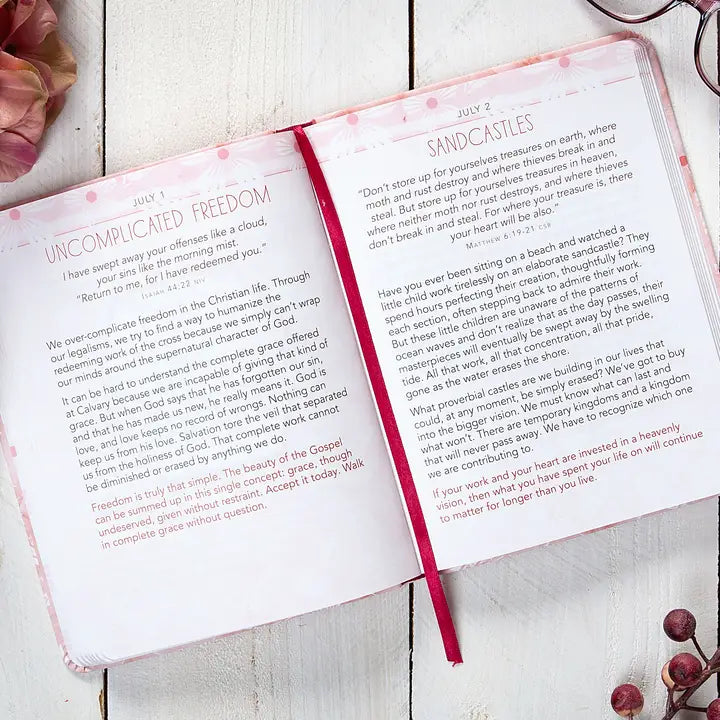 JULY 1
UNCOMPLICATED FREEDOM
I have swept away your offenses like a cloud,
your sins like the morning mist.
"Return to me, for I have redeemed you."
ISAIAH 44:22 NIV
We over-complicate freedom in the Christian life. Through
our legalisms, we try to find a way to humanize the
redeeming work of the cross because we simply can't wrap
our minds around the supernatural character of God.
It can be hard to understand the complete grace offered
at Calvary because we are incapable of giving that kind of
grace. But when God says that he has forgotten our sin,
and that he has made us new, he really means it. God is
love, and love keeps no record of wrongs. Nothing can
keep us from his love. Salvation tore the veil that separated
us from the holiness of God. That complete work cannot
be diminished or erased by anything we do.
Freedom is truly that simple. The beauty of the Gospel
can be summed up in this single concept: grace, though
undeserved, given without restraint. Accept it today. Walk
in complete grace without question.
JULY 2
SANDCASTLES
"Don't store up for yourselves treasures on earth, where
moth and rust destroy and where thieves break in and
steal. But store up for yourselves treasures in heaven,
where neither moth nor rust destroys, and where thieves
don't break in and steal. For where your treasure is, there
your heart will be also."
MATTHEW 6:19-21 CSB
Have you ever been sitting on a beach and watched a
little child work tirelessly on an elaborate sandcastle? They
spend hours perfecting their creation, thoughtfully forming
each section, often stepping back to admire their work.
But these little children are unaware of the patterns of
ocean waves and don't realize that as the day passes, their
masterpieces will eventually be swept away by the swelling
tide. All that work, all that concentration, all that pride,
gone as the water erases the shore.
What proverbial castles are we building in our lives that
could, at any moment, be simply erased? We've got to buy
into the bigger vision. We must know what can last and
what won't. There are temporary kingdoms and a kingdom
that will never pass away. We have to recognize which one
we are contributing to.
If your work and your heart are invested in a heavenly
vision, then what you have spent your life on will continue
to matter for longer than you live.